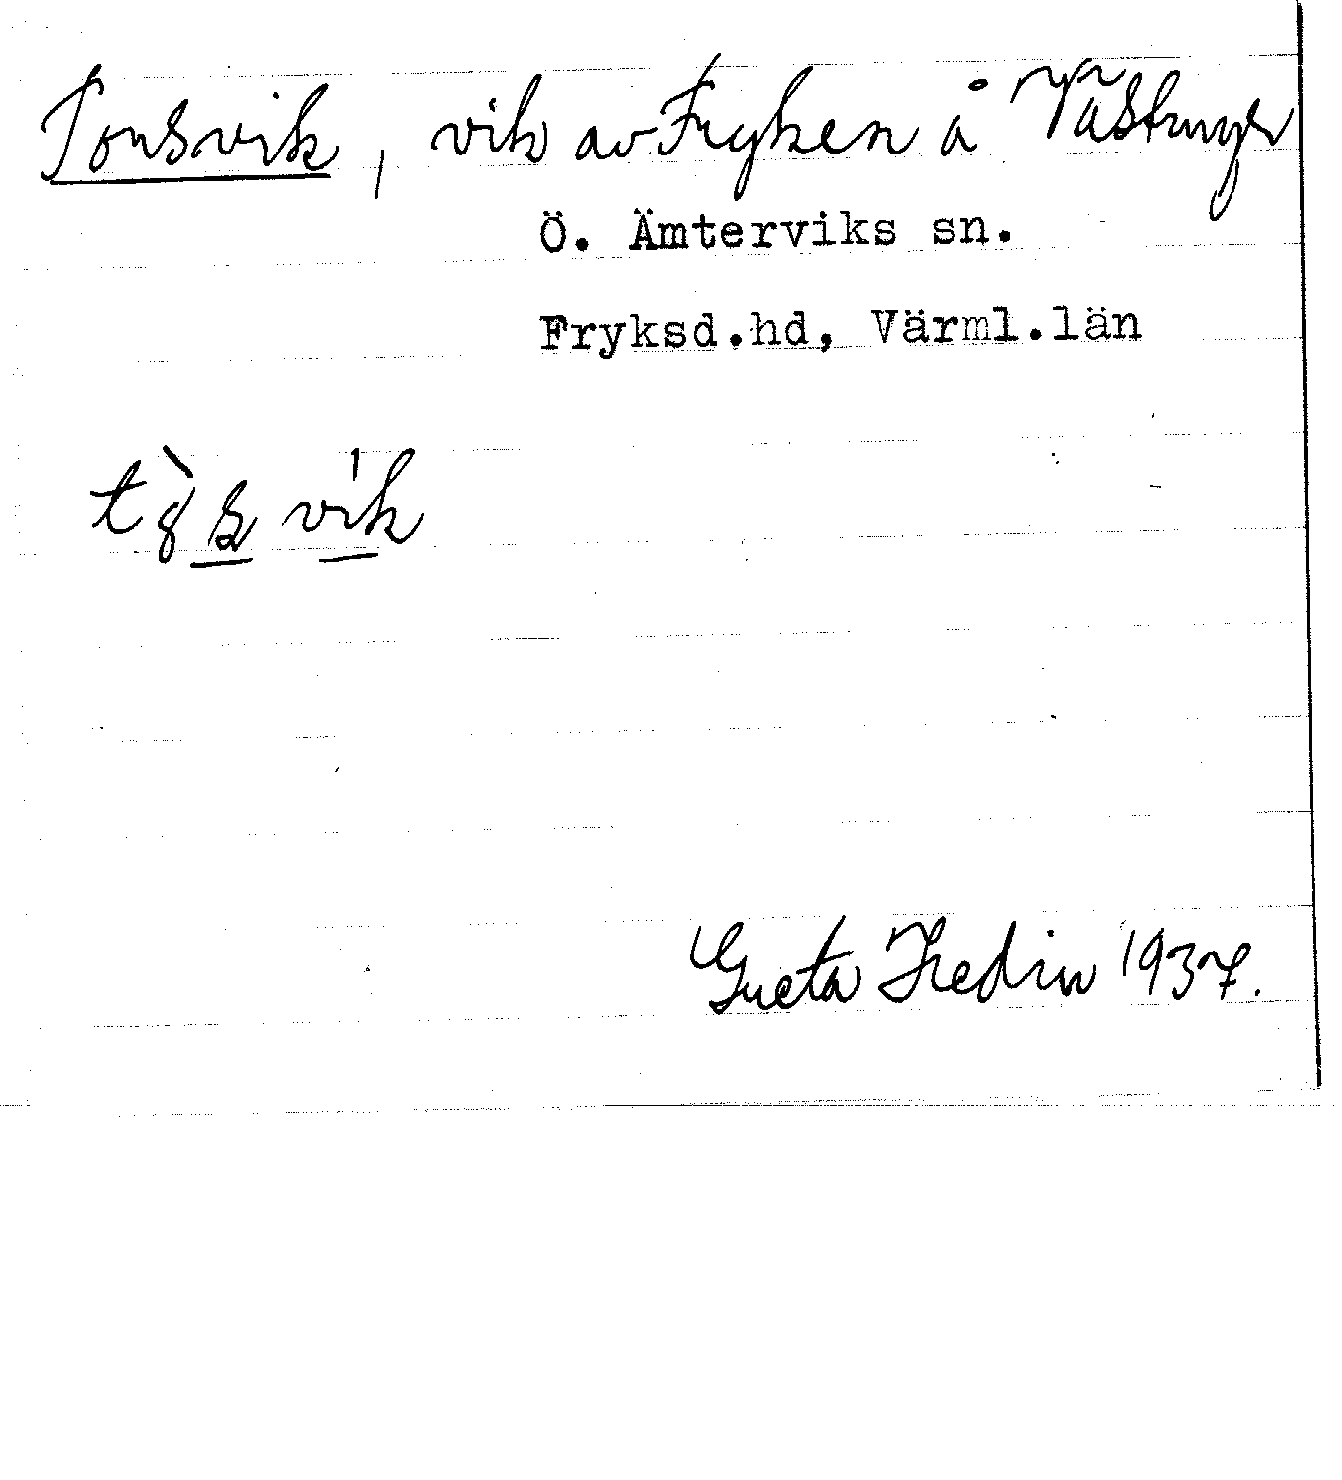 Tonsvik, vik av Fryken å
Ö. Ämterviks sn.
Fryksd.hd, Värml.län
vik
Greta Hedin 1937.